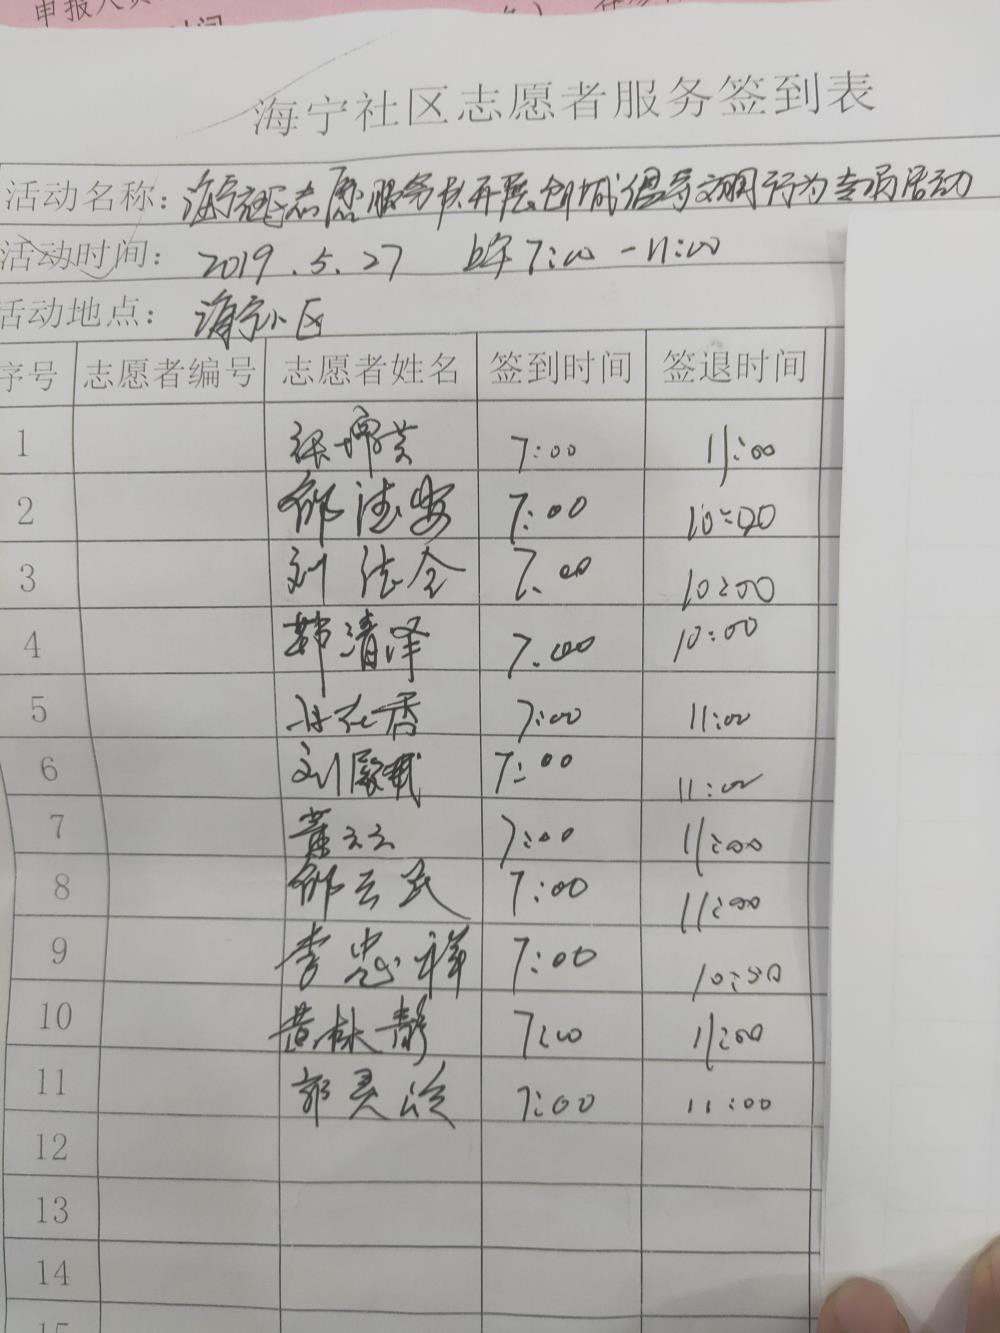 申报人员
时间
海宁社区志愿者服务签到表
活动名称：海宁社区志愿服务队开展创城倡导文明行为专项活动
活动时间：2019.5.27 上午7:00-11:00
活动地点：海宁小区
序号 志愿者编号 志愿者姓名 签到时间 签退时间
1 张 7:00 11:00
2 邴德安 7:00 10:00
3 刘法全 7.00 10:00
4 韩清泽 7.00 10:00
5 香 7:00 11:00
6 刘殿武 7:00 11:00
7 董云云 7:00 11:00
8 邴云民 7:00 11:00
9 李忠祥 7:00
10 黄林静 7:00 11:00
11 郭灵 7:00 11:00
12
13
14
15